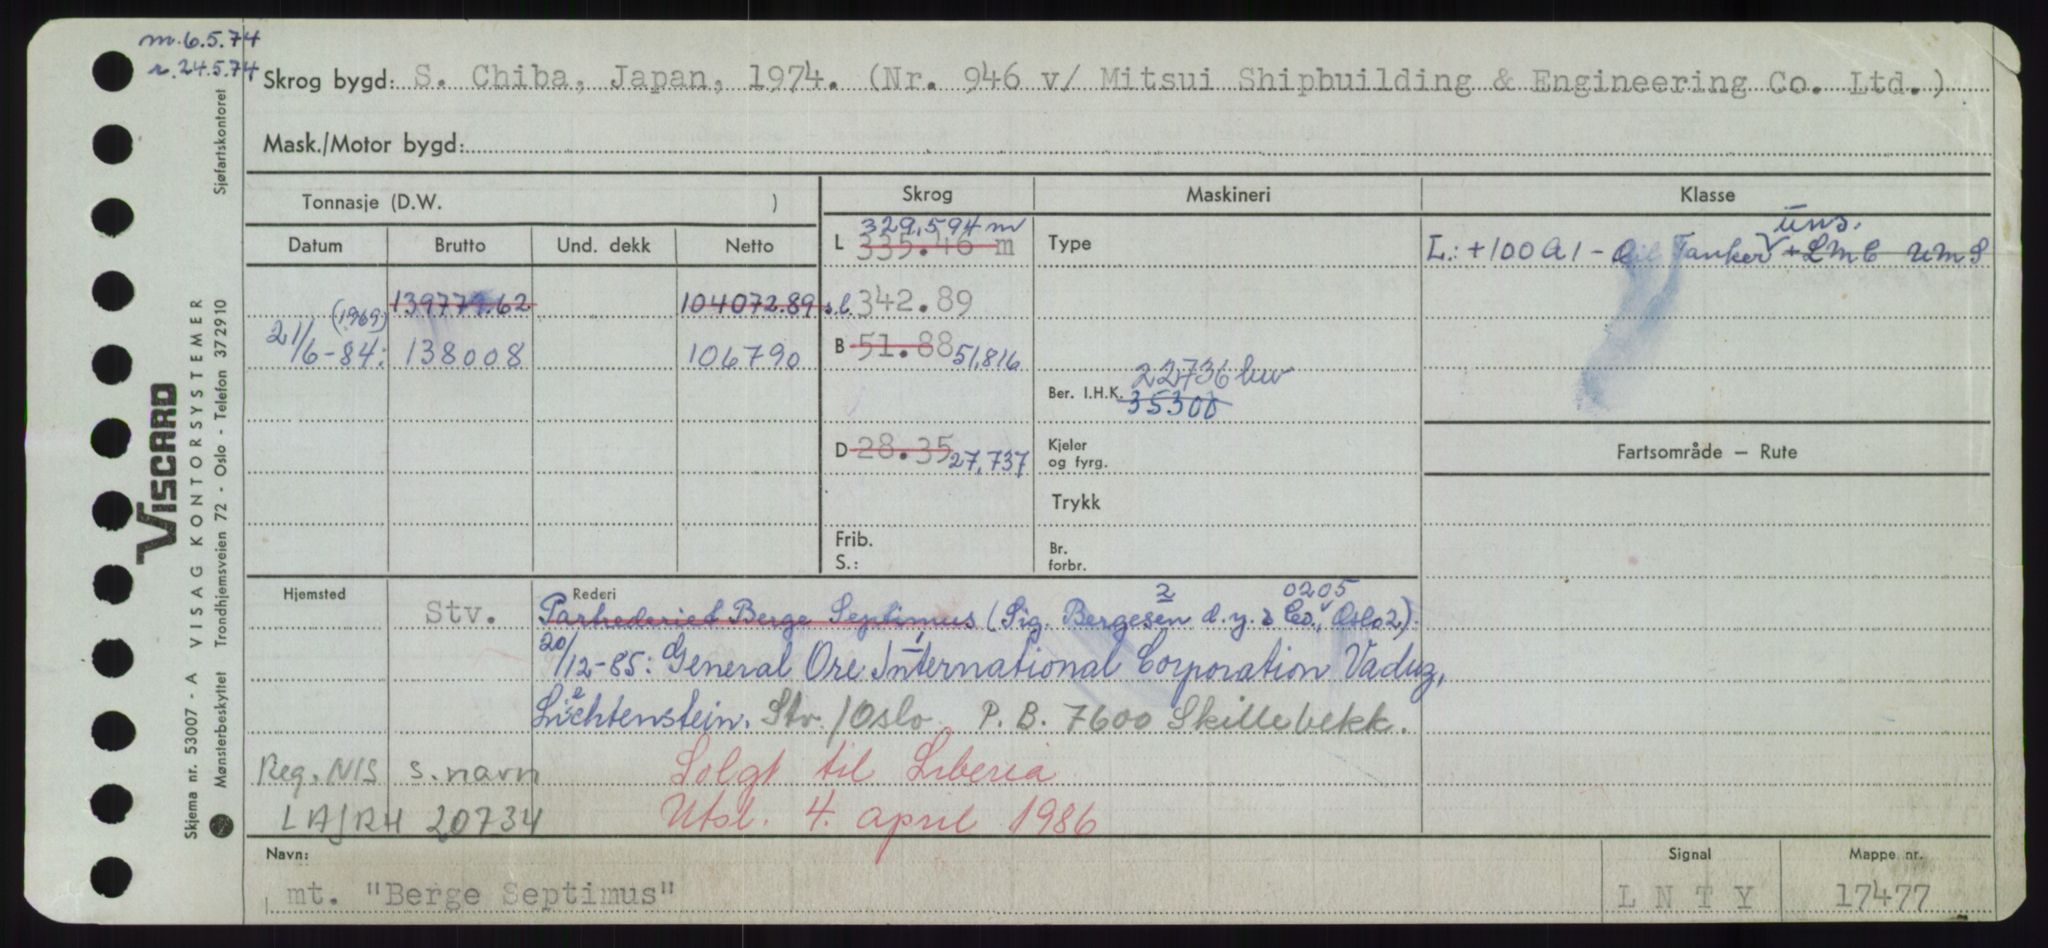 m. 6.5.74
r. 24.5.74
Skrog bygd: S. Chiba, Japan, 1974. (Nr. 946 v/ Mitsui Shipbuilding & Engineering Co. Ltd.)
Mask./Motor bygd:
Tonnasje (D.W. )
Skrog
Maskineri
Klasse
Datum Brutto Und. dekk Netto
L 335.46 m 329,594 m
Type
L: +100 A1 - Oil Tanker +LMC UMS
ums.
139777.62 104072.89 s.l. 342.89
(1969)
21/6-84: 138008 106790
B 51.88 51,816
Ber. I.H.K. 22736 kw
35300
D 28.35 27,737
Kjeler og fyrg.
Fartsområde — Rute
Trykk
Frib.
S.:
Br. forbr.
Hjemsted
Stv.
Rederi
2 0205
Partrederiet Berge Septimus (Sig. Bergesen d.y. & Co., Oslo 2.)
20/12-85: General Ore International Corporation Vaduz,
Liechtenstein. Stv./Oslo P. B. 7600 Skillebekk.
Reg. NIS s. navn Solgt til Liberia
LAJRH 20734 Utsl. 4. april 1986
Navn: Signal Mappe nr.
mt. "Berge Septimus" L N T Y 17477
Skjema nr. 53007 - A VISAG KONTORSYSTEMER
Mønsterbeskyttet Trondhjemsveien 72 - Oslo - Telefon 372910 Sjøfartskontoret
VISCARD